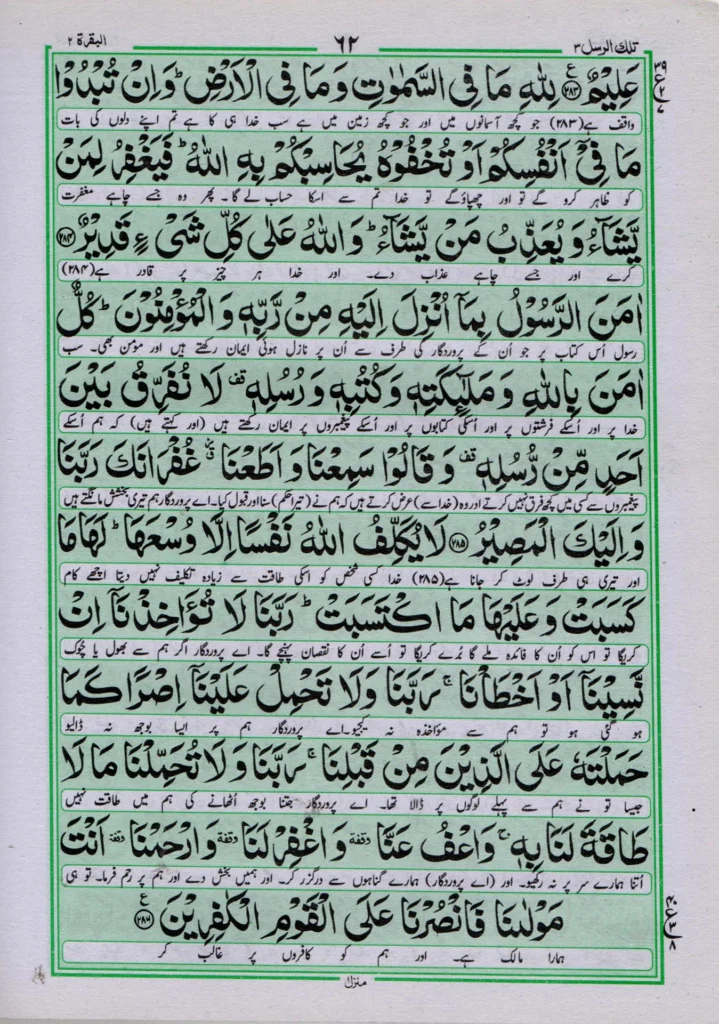 تلك الرسل ٣ ٦٢ البقرة ٢
عَلِيْمٌ ﴿٢٨٣﴾ لِلّٰهِ مَا فِى السَّمٰوٰتِ وَمَا فِى الْاَرْضِ ؕ وَاِنْ تُبْدُوْا
واقف ہے (۲۸۳) جو کچھ آسمانوں میں اور جو کچھ زمین میں ہے سب خدا ہی کا ہے تم اپنے دلوں کی بات
مَا فِىْۤ اَنْفُسِكُمْ اَوْ تُخْفُوْهُ يُحَاسِبْكُمْ بِهِ اللّٰهُ ؕ فَيَغْفِرُ لِمَنْ
کو ظاہر کرو گے تو اور چھپاؤگے تو خدا تم سے اسکا حساب لے گا۔ پھر وہ جسے چاہے مغفرت
يَّشَآءُ وَيُعَذِّبُ مَنْ يَّشَآءُ ؕ وَاللّٰهُ عَلٰى كُلِّ شَىْءٍ قَدِيْرٌ ﴿٢٨٤﴾
کرے اور جسے چاہے عذاب دے۔ اور خدا ہر چیز پر قادر ہے (۲۸۴)
اٰمَنَ الرَّسُوْلُ بِمَاۤ اُنْزِلَ اِلَيْهِ مِنْ رَّبِّهٖ وَالْمُؤْمِنُوْنَ ؕ كُلٌّ
رسول اُس کتاب پر جو اُن کے پروردگار کی طرف سے اُن پر نازل ہوئی ایمان رکھتے ہیں اور مومن بھی۔ سب
اٰمَنَ بِاللّٰهِ وَمَلٰٓئِكَتِهٖ وَكُتُبِهٖ وَرُسُلِهٖ قف لَا نُفَرِّقُ بَيْنَ
خدا پر اور اُسکے فرشتوں پر اور اُسکی کتابوں پر اور اُسکے پیغمبروں پر ایمان رکھتے ہیں (اور کہتے ہیں) کہ ہم اُسکے
اَحَدٍ مِّنْ رُّسُلِهٖ قف وَقَالُوْا سَمِعْنَا وَاَطَعْنَا غُفْرَانَكَ رَبَّنَا
پیغمبروں سے کسی میں کچھ فرق نہیں کرتے اور وہ (خدا سے) عرض کرتے ہیں کہ ہم نے (تیرا حکم) سنا اور قبول کیا۔ اے پروردگار ہم تیری بخشش مانگتے ہیں
وَاِلَيْكَ الْمَصِيْرُ ﴿٢٨٥﴾ لَا يُكَلِّفُ اللّٰهُ نَفْسًا اِلَّا وُسْعَهَا ؕ لَهَا مَا
اور تیری ہی طرف لوٹ کر جانا ہے (۲۸۵) خدا کسی شخص کو اسکی طاقت سے زیادہ تکلیف نہیں دیتا اچھے کام
كَسَبَتْ وَعَلَيْهَا مَا اكْتَسَبَتْ ؕ رَبَّنَا لَا تُؤَاخِذْنَاۤ اِنْ
کریگا تو اس کو اُن کا فائدہ ملے گا بُرے کریگا تو اُسے اُن کا نقصان پہنچے گا۔ اے پروردگار اگر ہم سے بھول یا چُوک
نَّسِيْنَاۤ اَوْ اَخْطَاْنَا ۚ رَبَّنَا وَلَا تَحْمِلْ عَلَيْنَاۤ اِصْرًا كَمَا
ہو گئی ہو تو ہم سے مؤاخذہ نہ کیجیو۔ اے پروردگار ہم پر ایسا بوجھ نہ ڈالیو
حَمَلْتَهٗ عَلَى الَّذِيْنَ مِنْ قَبْلِنَا ۚ رَبَّنَا وَلَا تُحَمِّلْنَا مَا لَا
جیسا تو نے ہم سے پہلے لوگوں پر ڈالا تھا۔ اے پروردگار جتنا بوجھ اُٹھانے کی ہم میں طاقت نہیں
طَاقَةَ لَنَا بِهٖ ۚ وَاعْفُ عَنَّا وقفة وَاغْفِرْ لَنَا وقفة وَارْحَمْنَا وقفة اَنْتَ
اُتنا ہمارے سر پر نہ رکھیو۔ اور (اے پروردگار) ہمارے گناہوں سے درگزر کر۔ اور ہمیں بخش دے اور ہم پر رحم فرما۔ تو ہی
مَوْلٰىنَا فَانْصُرْنَا عَلَى الْقَوْمِ الْكٰفِرِيْنَ ﴿٢٨٦﴾
ہمارا مالک ہے۔ اور ہم کو کافروں پر غالب کر
منزل